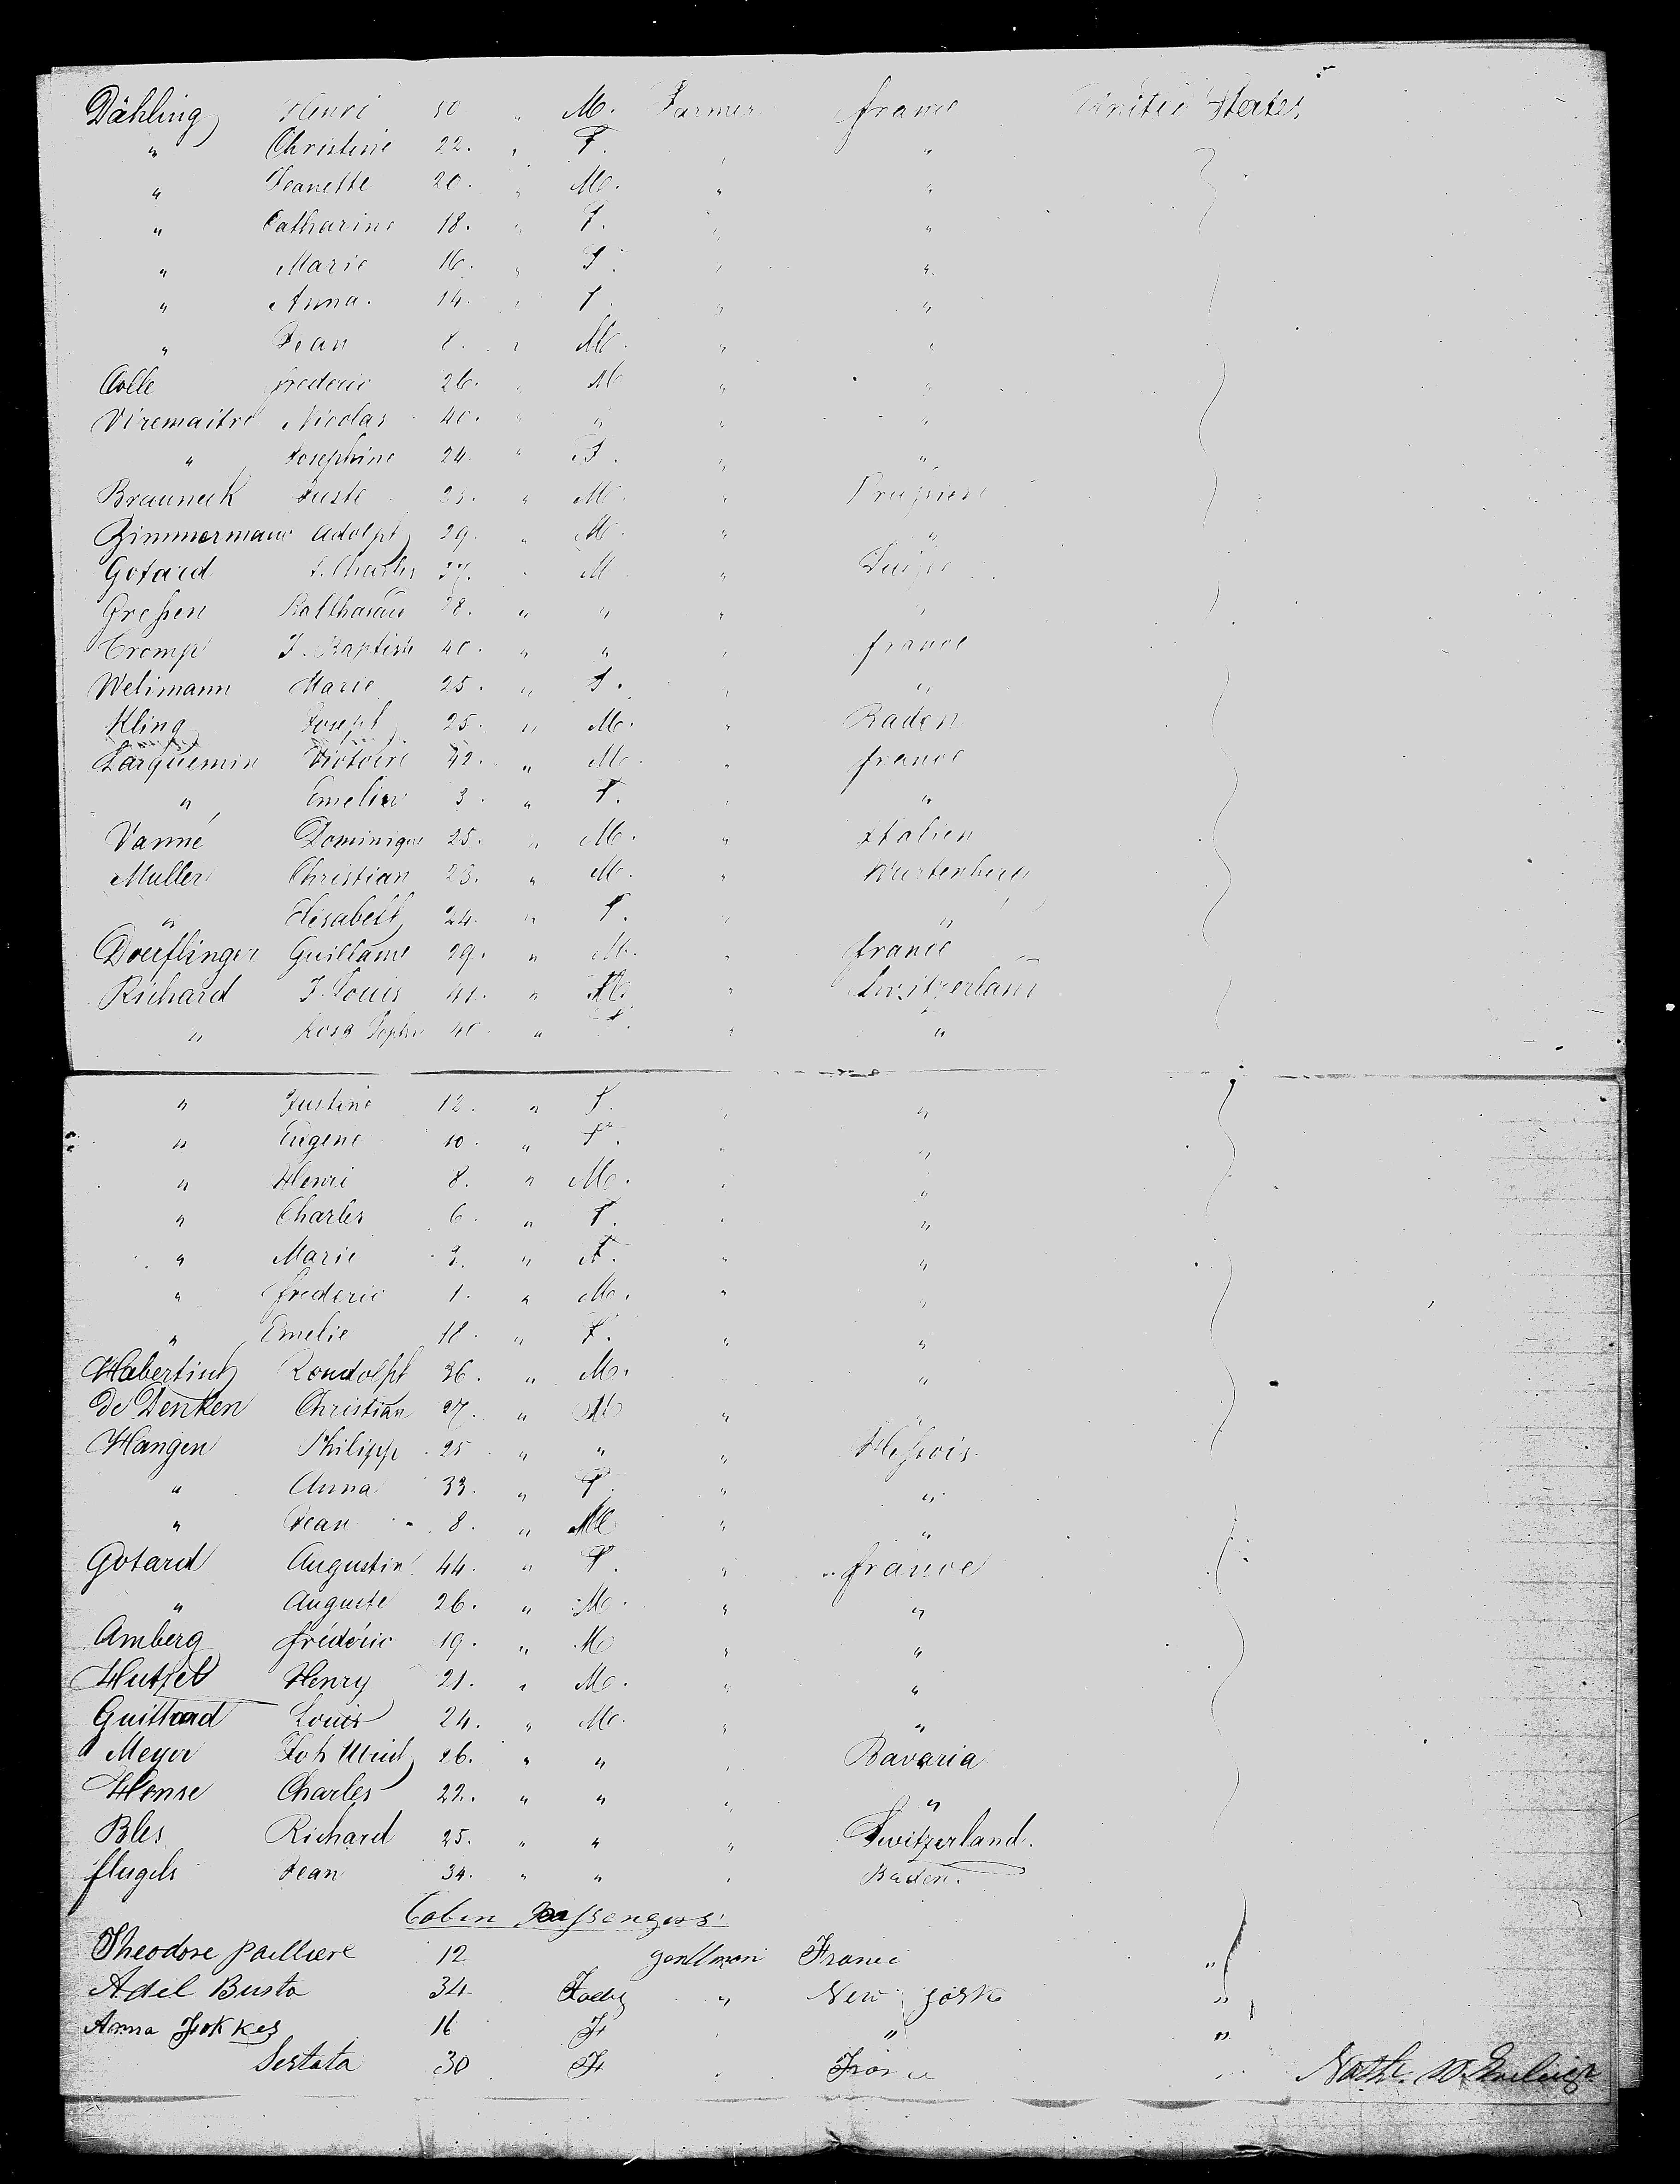 Dähling Henri 50 " M. Farmer france United States
" Christine 22. " F. " "
" Jeanette 20. " M. " "
" Catharine 18. " F. " "
" Marie 16. " F. " "
" Anna. 14. " F. " "
" Jean 8. " M. " "
Colle frederic 26. " M " "
Viremaitre Nicolas 40. " " " "
" Josephine 24. " F. " "
Brauneck Juste 25. " M. " Prussien
Zimmermann Adolph 29. " M. " "
Gotard J. Charles 37. " M " Suisse
Gressen Balthasar 28. " " " "
Cromp J. Baptiste 40. " " " france
Welimann Marie 25. " F. " "
Kling Joseph 25. " M. " Baden
Larquemin Victoire 42. " M. " france
" Emelie 3. " F. " "
Vanné Dominique 25. " M. " Italien
Muller Christian 23. " M. " Wurtenberg
" Elisabeth 24. " F. " "
Doerflinger Guillame 29. " M. " france
Richard J. Louis 41. " M. " Switzerland
" Rosa Sophie 40 " F. " "
" Justine 12. " F. " "
" Eugene 10. " F. " "
" Henri 8. " M. " "
" Charles 6. " F. " "
" Marie 3. " F. " "
" frederic 1. " M. " "
" Emelie 18. " F. " "
Habertint Roudolph 36. " M. "
De Denken Christian 27. " M " "
Hangen Philipp 25 " " " Hessois
" Anna 33. " F. " "
" Jean 8. " M " "
Gotard Augustin 44. " F. " france
" Auguste 26. " M. " "
Amberg frédéric 19. " M " "
Hutzel Henry 21. " M. " "
Guithard Louis 24. " M. " "
Meyer Joh 26. " " " Bavaria
Hense Charles 22. " " " "
Bles Richard 25. " " " Switzerland.
flugels Jean 34. " " " Baden.
Caben Passengers
Theodore pailliere 12 gentlman France "
Adel Busto 34 Lady " New york "
Anna Fokkes 16 F " "
Sertata 30 F France
Nathl.